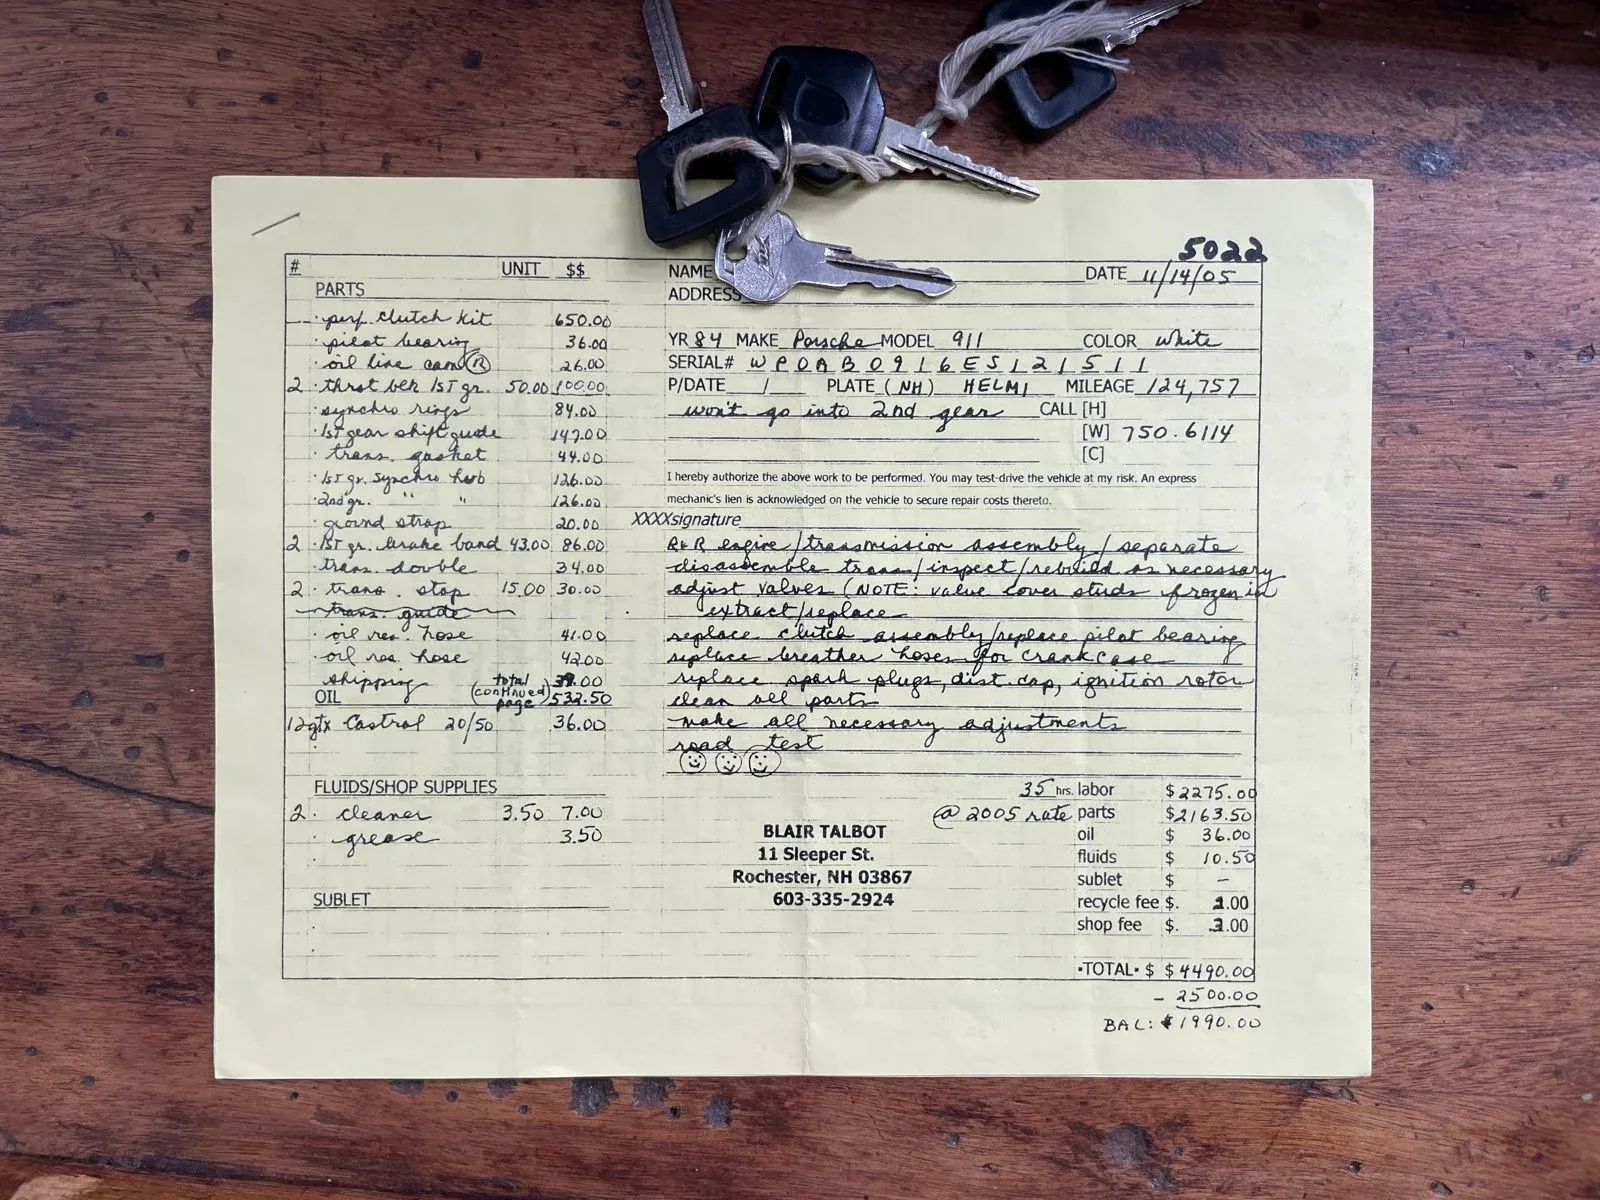 5022
# UNIT $$
PARTS
perf. clutch kit 650.00
pilot bearing 36.00
oil line cam (R) 26.00
2 thrst bek 1ST gr. 50.00 100.00
synchro rings 84.00
1ST gear shift guide 147.00
trans. gasket 44.00
1ST gr. synchro hub 126.00
2nd gr. " " 126.00
ground strap 20.00
2 1ST gr. brake band 43.00 86.00
trans. double 34.00
2 trans. stop 15.00 30.00
trans. guide
oil res. hose 41.00
oil res. hose 42.00
shipping 39.00
OIL total (continued page) 532.50
12 qts Castrol 20/50 36.00
FLUIDS/SHOP SUPPLIES
2 cleaner 3.50 7.00
grease 3.50
SUBLET
NAME DATE 11/14/05
ADDRESS
YR 84 MAKE Porsche MODEL 911 COLOR White
SERIAL# WP0AB0916ES121511
P/DATE / PLATE (NH) HELMI MILEAGE 124,757
won't go into 2nd gear CALL [H]
[W] 750.6114
[C]
I hereby authorize the above work to be performed. You may test-drive the vehicle at my risk. An express
mechanic's lien is acknowledged on the vehicle to secure repair costs thereto.
XXXXsignature
R&R engine/transmission assembly/separate
disassemble trans/inspect/rebuild as necessary
adjust valves (NOTE: valve cover studs frozen in
extract/replace
replace clutch assembly/replace pilot bearing
replace breather hoses for crankcase
replace spark plugs, dist. cap, ignition rotor
clean all parts
make all necessary adjustments
road test
35 hrs. labor $2275.00
@ 2005 rate parts $2163.50
oil $ 36.00
fluids $ 10.50
sublet $ –
recycle fee $. .00
shop fee $. .00
BLAIR TALBOT
11 Sleeper St.
Rochester, NH 03867
603-335-2924
•TOTAL• $ $4490.00
- 2500.00
BAL: $1990.00